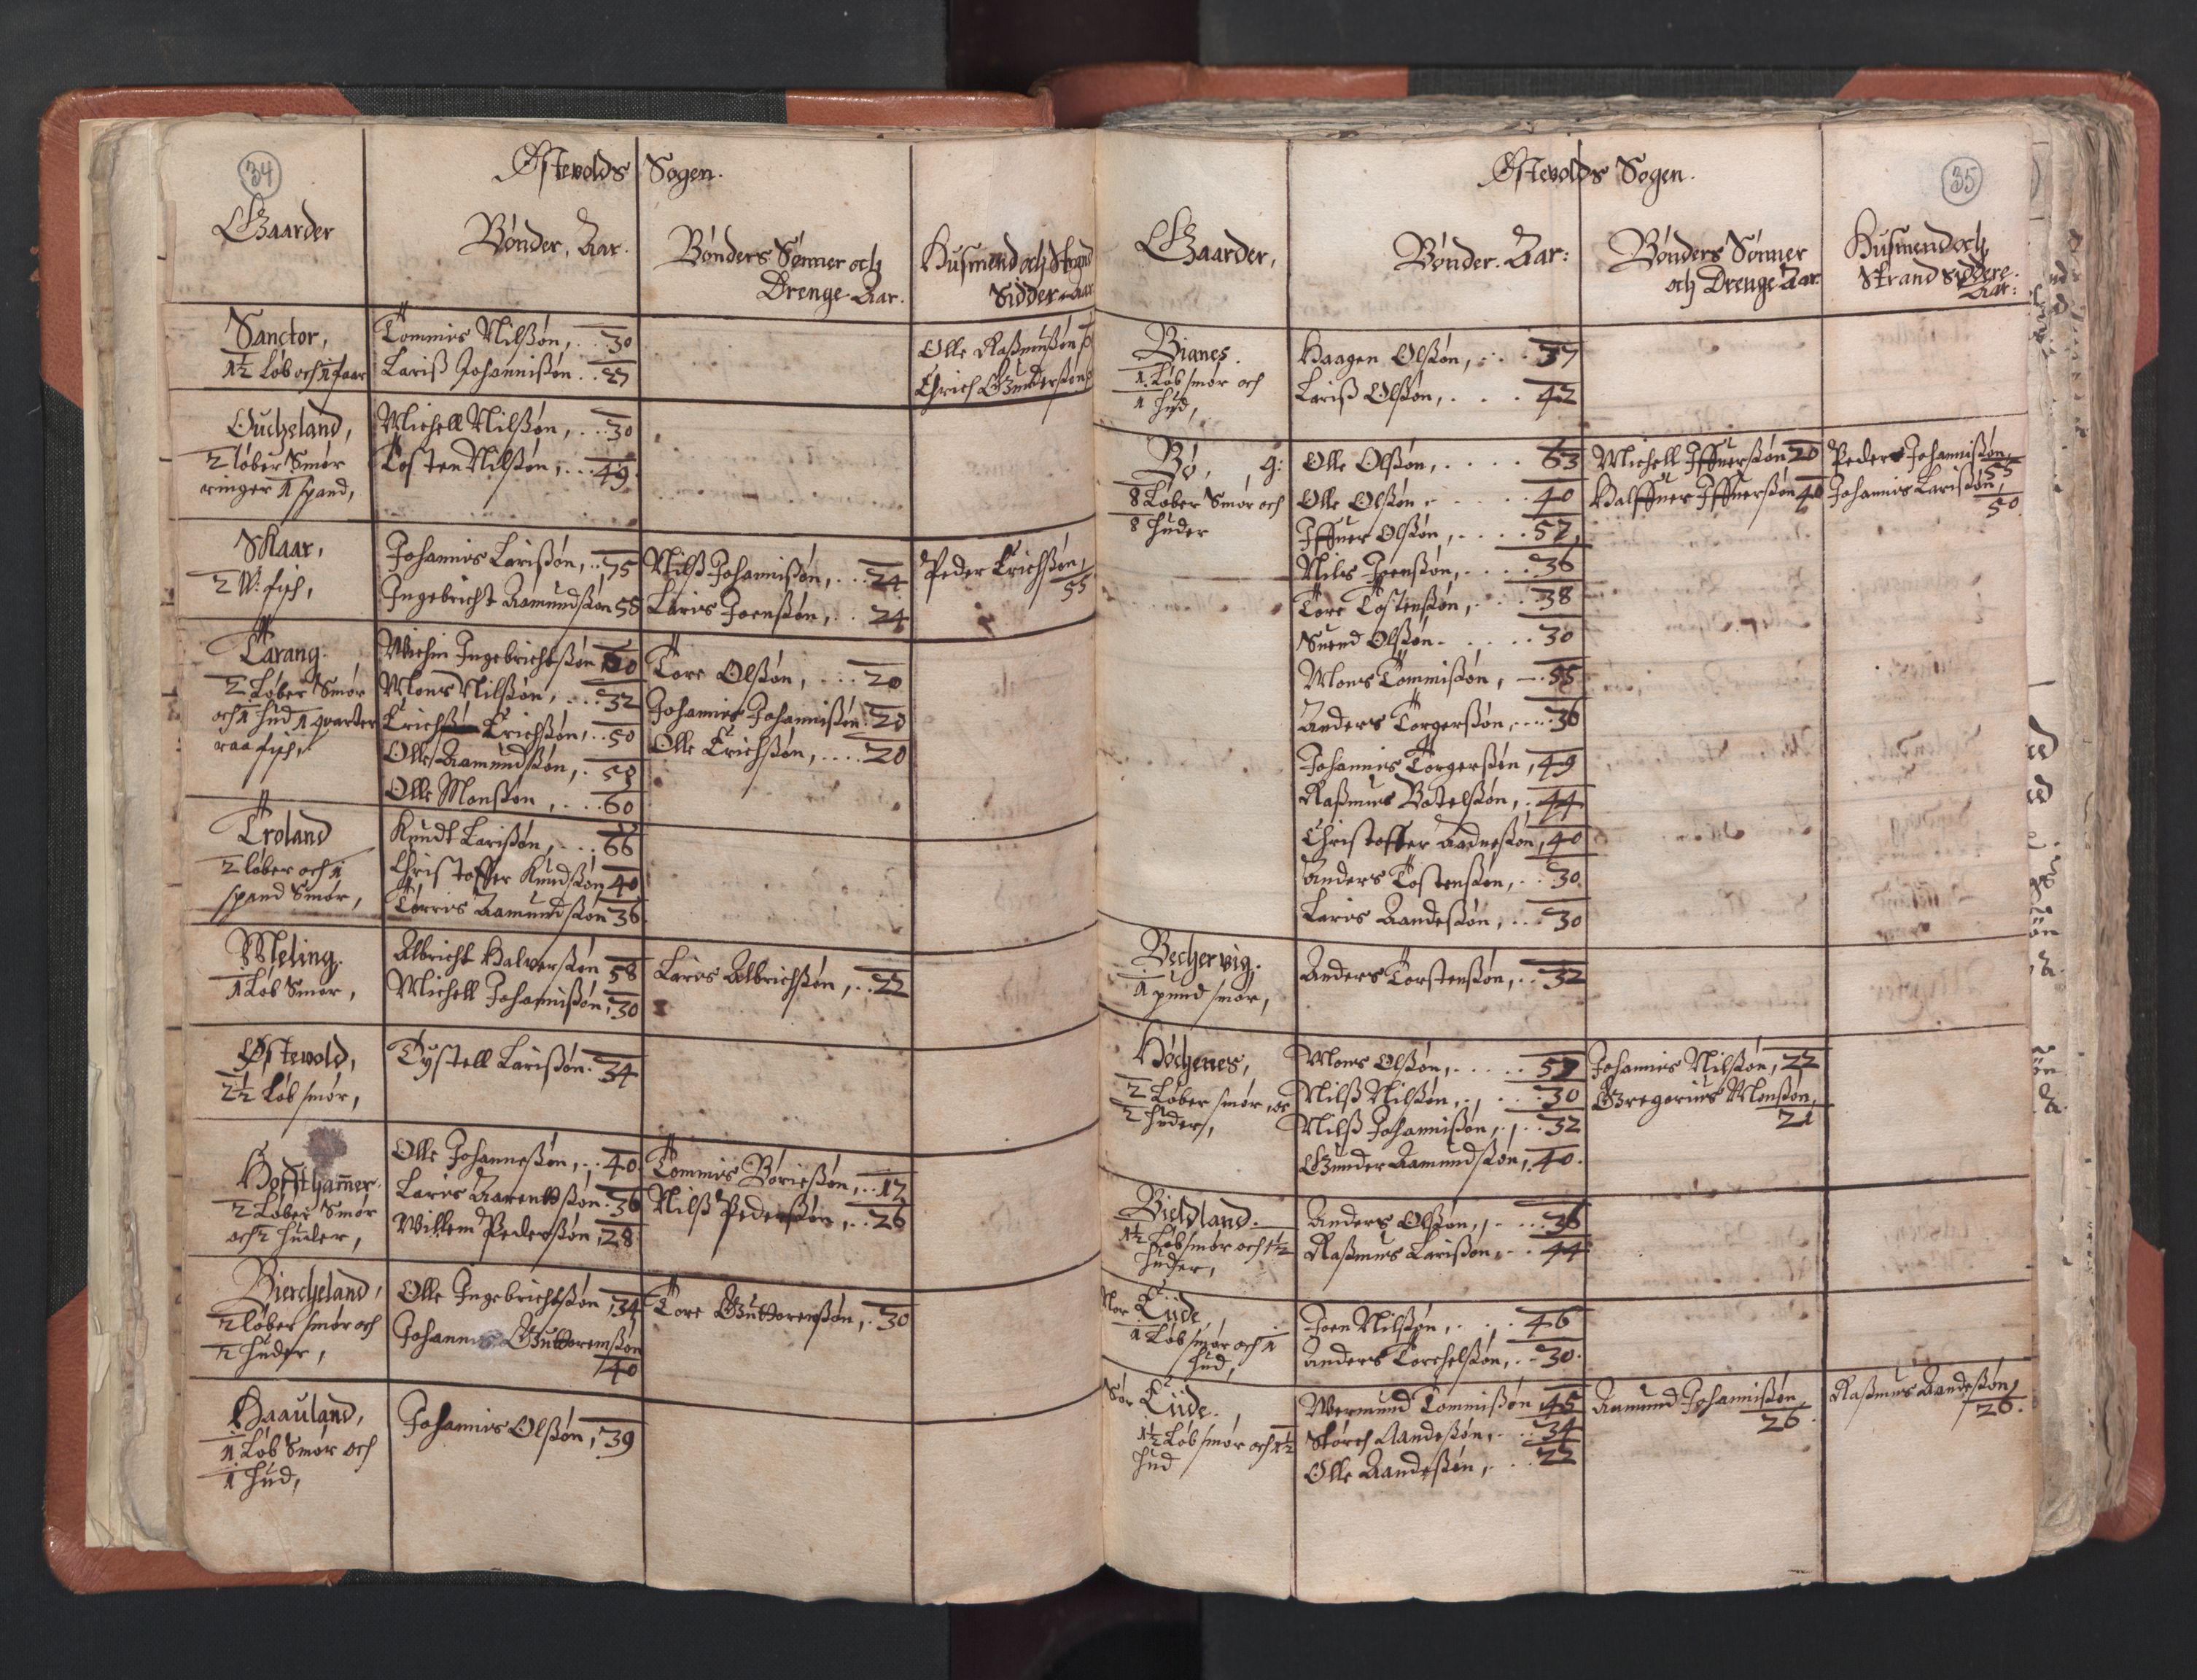 34
Østevolds Sogen.
Gaarder
Bønder, Aar.
Bønders Sønner och
Drenge Aar.
Husmend och Strand
Sidder Aar
Sanctor,
1½ Løb och 1 faar
Tommis Nilßøn, . . 30
Lariß Johannißøn . . 27
Olle Raßmußøn
Erich Gunderßøn
Oucheland,
2 løber Smør
ringer 1 spand,
Michell Nilßøn, . . 30
Tosten Nilßøn, . . . 49.
Skaar,
2 W: fisch,
Johannis Larißøn, . . 75
Ingebricht Aamundßøn 58
Nilß Johannißøn, . . . 24
Laris Joenßøn, . . 24
Peder Erichßøn,
55
Tarang.
2 Løber Smør
och 1 Hud 1 quarter
raa fisch,
Michin Ingebrichtßøn
Mons Nilßøn, . . . 32
Erich Erichßøn, . . 50
Olle Aamundßøn, . 58
Olle Monßøn, . . . 60
Tore Olßøn, . . . . 20
Johannis Johannißøn 20
Olle Erichßøn, . . . . 20
Troland
2 løber och 1
spand Smør,
Knudt Larißøn, . . . 66
Christoffer Knudßøn 40
Torris Aamundßøn 36
Meling.
1 Løb Smør,
Albricht Halverßøn 58
Michell Johannißøn, 30
Laris Albrichßøn, . . 22
Østevold,
2½ Løb smør,
Tystell Larißøn. 34
Hoffthamer.
2 Løber Smør
och 2 Huder,
Olle Johanneßøn, . . 40.
Laris Aarentßøn . 36
Willem Pederßøn, 28
Tommis Børießøn, . . 17
Nilß Pederßøn, . . 26
Biercheland,
2 løber smør och
2 Huder,
Olle Ingebrichtßøn, 34
Johannis Guttormßøn
40
Tore Guttormßøn, . 30
Haauland,
1 Løb Smør och
1 Hud,
Johannis Olßøn, 39
35
Østevolds Sogen.
Gaarder,
Bønder. Aar:
Bønders Sønner
och Drenge Aar
Husmend och
Strand Siddere.
Aar:
Bianes.
1. Løb smør och
1 Hud,
Haagen Olßøn, . . . 37
Lariß Olßøn, . . . 42
Bø, g:
8 Løber Smør och
8 Huder
Olle Olßøn, . . . . . 63
Olle Olßøn . . . . . 40
Iffuer Olßøn, . . . . 52,
Nils Joenßøn, . . . . 36
Tore Tostenßøn, . . . 38
Suend Olßøn . . . . . 30
Mons Tommißøn, . . 55
Anders Torgerßøn, . . . . 36
Johannis Torgerßøn, 49
Raßmus Botelßøn, . 44
Christoffer Aadneßøn, 40
Anders Tostenßøn, . . 30.
Laris Aandeßøn, . . . 30
Michell Iffuerßøn 20
Halffuer Iffuerßøn 40
Peder Johannißøn,
55
Johannis Larißøn,
50.
Bechervig.
1 pund smør,
Anders Torstenßøn, . . 32
Høchenes,
2 Løber smør, oc
2 Huder,
Mons Olßøn, . . . . . 57
Nilß Nilßøn, . , . . . 30
Nilß Johannißøn, . , . . 32
Gunder Aamundßøn, . 40.
Johannis Nilßøn, 22
Gregorius Monßøn,
21
Bieldland.
1½ Løb smør och 1½
Huder,
Anders Olßøn, , . . . . 36
Raßmus Larißøn, . . 44
Nor Eide
1 Løb smør och 1
Hud,
Joen Nilßøn, . . . . 46
Anders Torchelßøn, . . 30.
Sør Eide.
1½ Løb smør och 1½
Hud
Wermund Tommißøn, 45
Størch Aandeßøn, . . 34
Olle Aandeßøn, . . . 22
Aamund Johannißøn,
26.
Raßmus Aandeßøn,
26.